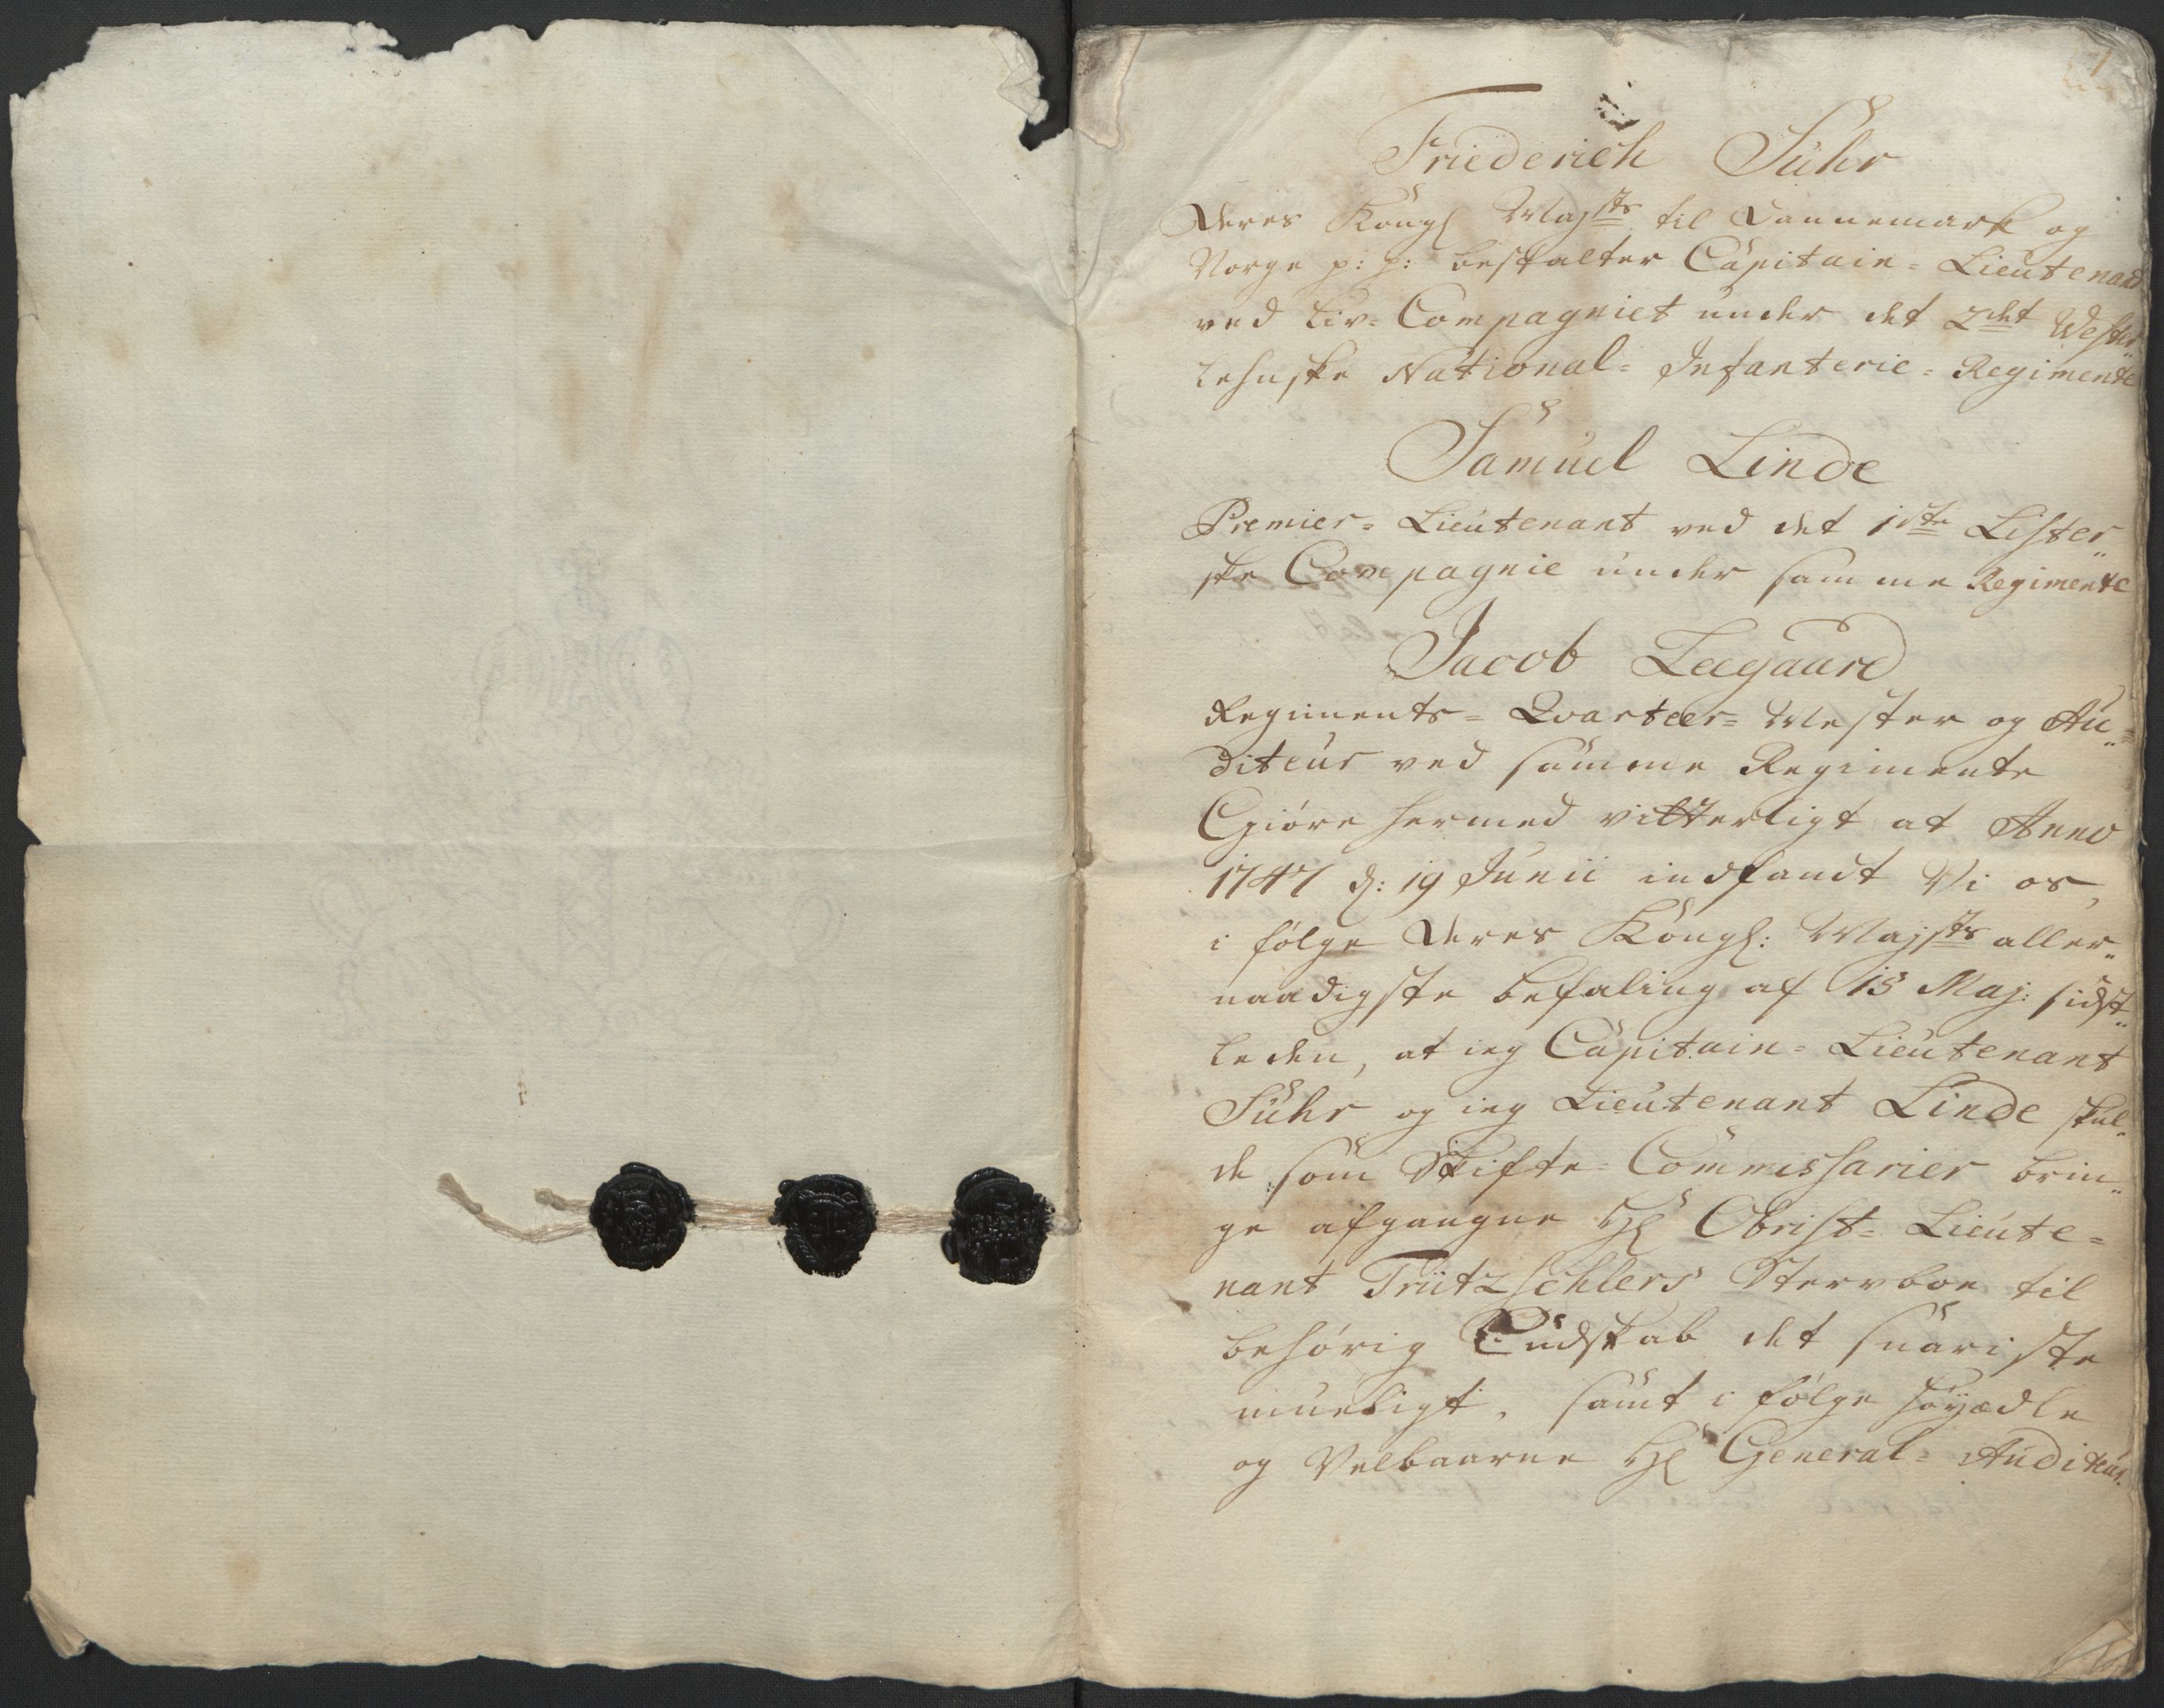 1
Friederich Suhr
Deres Kongl Majsts til Dannemark og
Norge p: p: bestalter Capitain = Lieutenant
ved Liv = Compagniet under det 2det Wester„
lehnske National = Infanterie = Regimente
Samuel Linde
Premier = Lieutenant ved det 1ste Lister„
ske Compagnie under samme Regimente
Jacob Leegaard
Regiments = Qvarteer = Mester og Au„
diteur ved samme Regimente
Giöre hermed vitterligt at Anno
1747 d: 19 Junii indfandt Vi os,
i fölge Deres Kongl: Majsts aller„
naadigste befaling af 15 Maj: sidst„
leden, at ieg Capitain = Lieutenant
Suhr og ieg Lieutenant Linde skul„
de som Skifte = Commissarier brin„
ge afgangne Hl Obrist = Lieute =
nant Trützschlers Sterboe til
behörig Endskab det snariste
mueligt, samt i fölge Höyædle
og Velbaarne Hl General = Auditeur